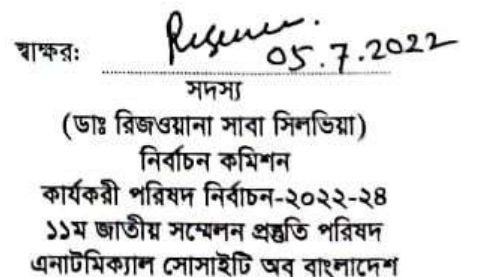 স্বাক্ষরঃ
05.7.2022
সদস্য
(ডাঃ রিজওয়ানা সাবা সিলভিয়া)
নির্বাচন কমিশন
কার্যকরী পরিষদ নির্বাচন-২০২২-২৪
১১ম জাতীয় সম্মেলন প্রস্তুতি পরিষদ
এনাটমিক্যাল সোসাইটি অব বাংলাদেশ